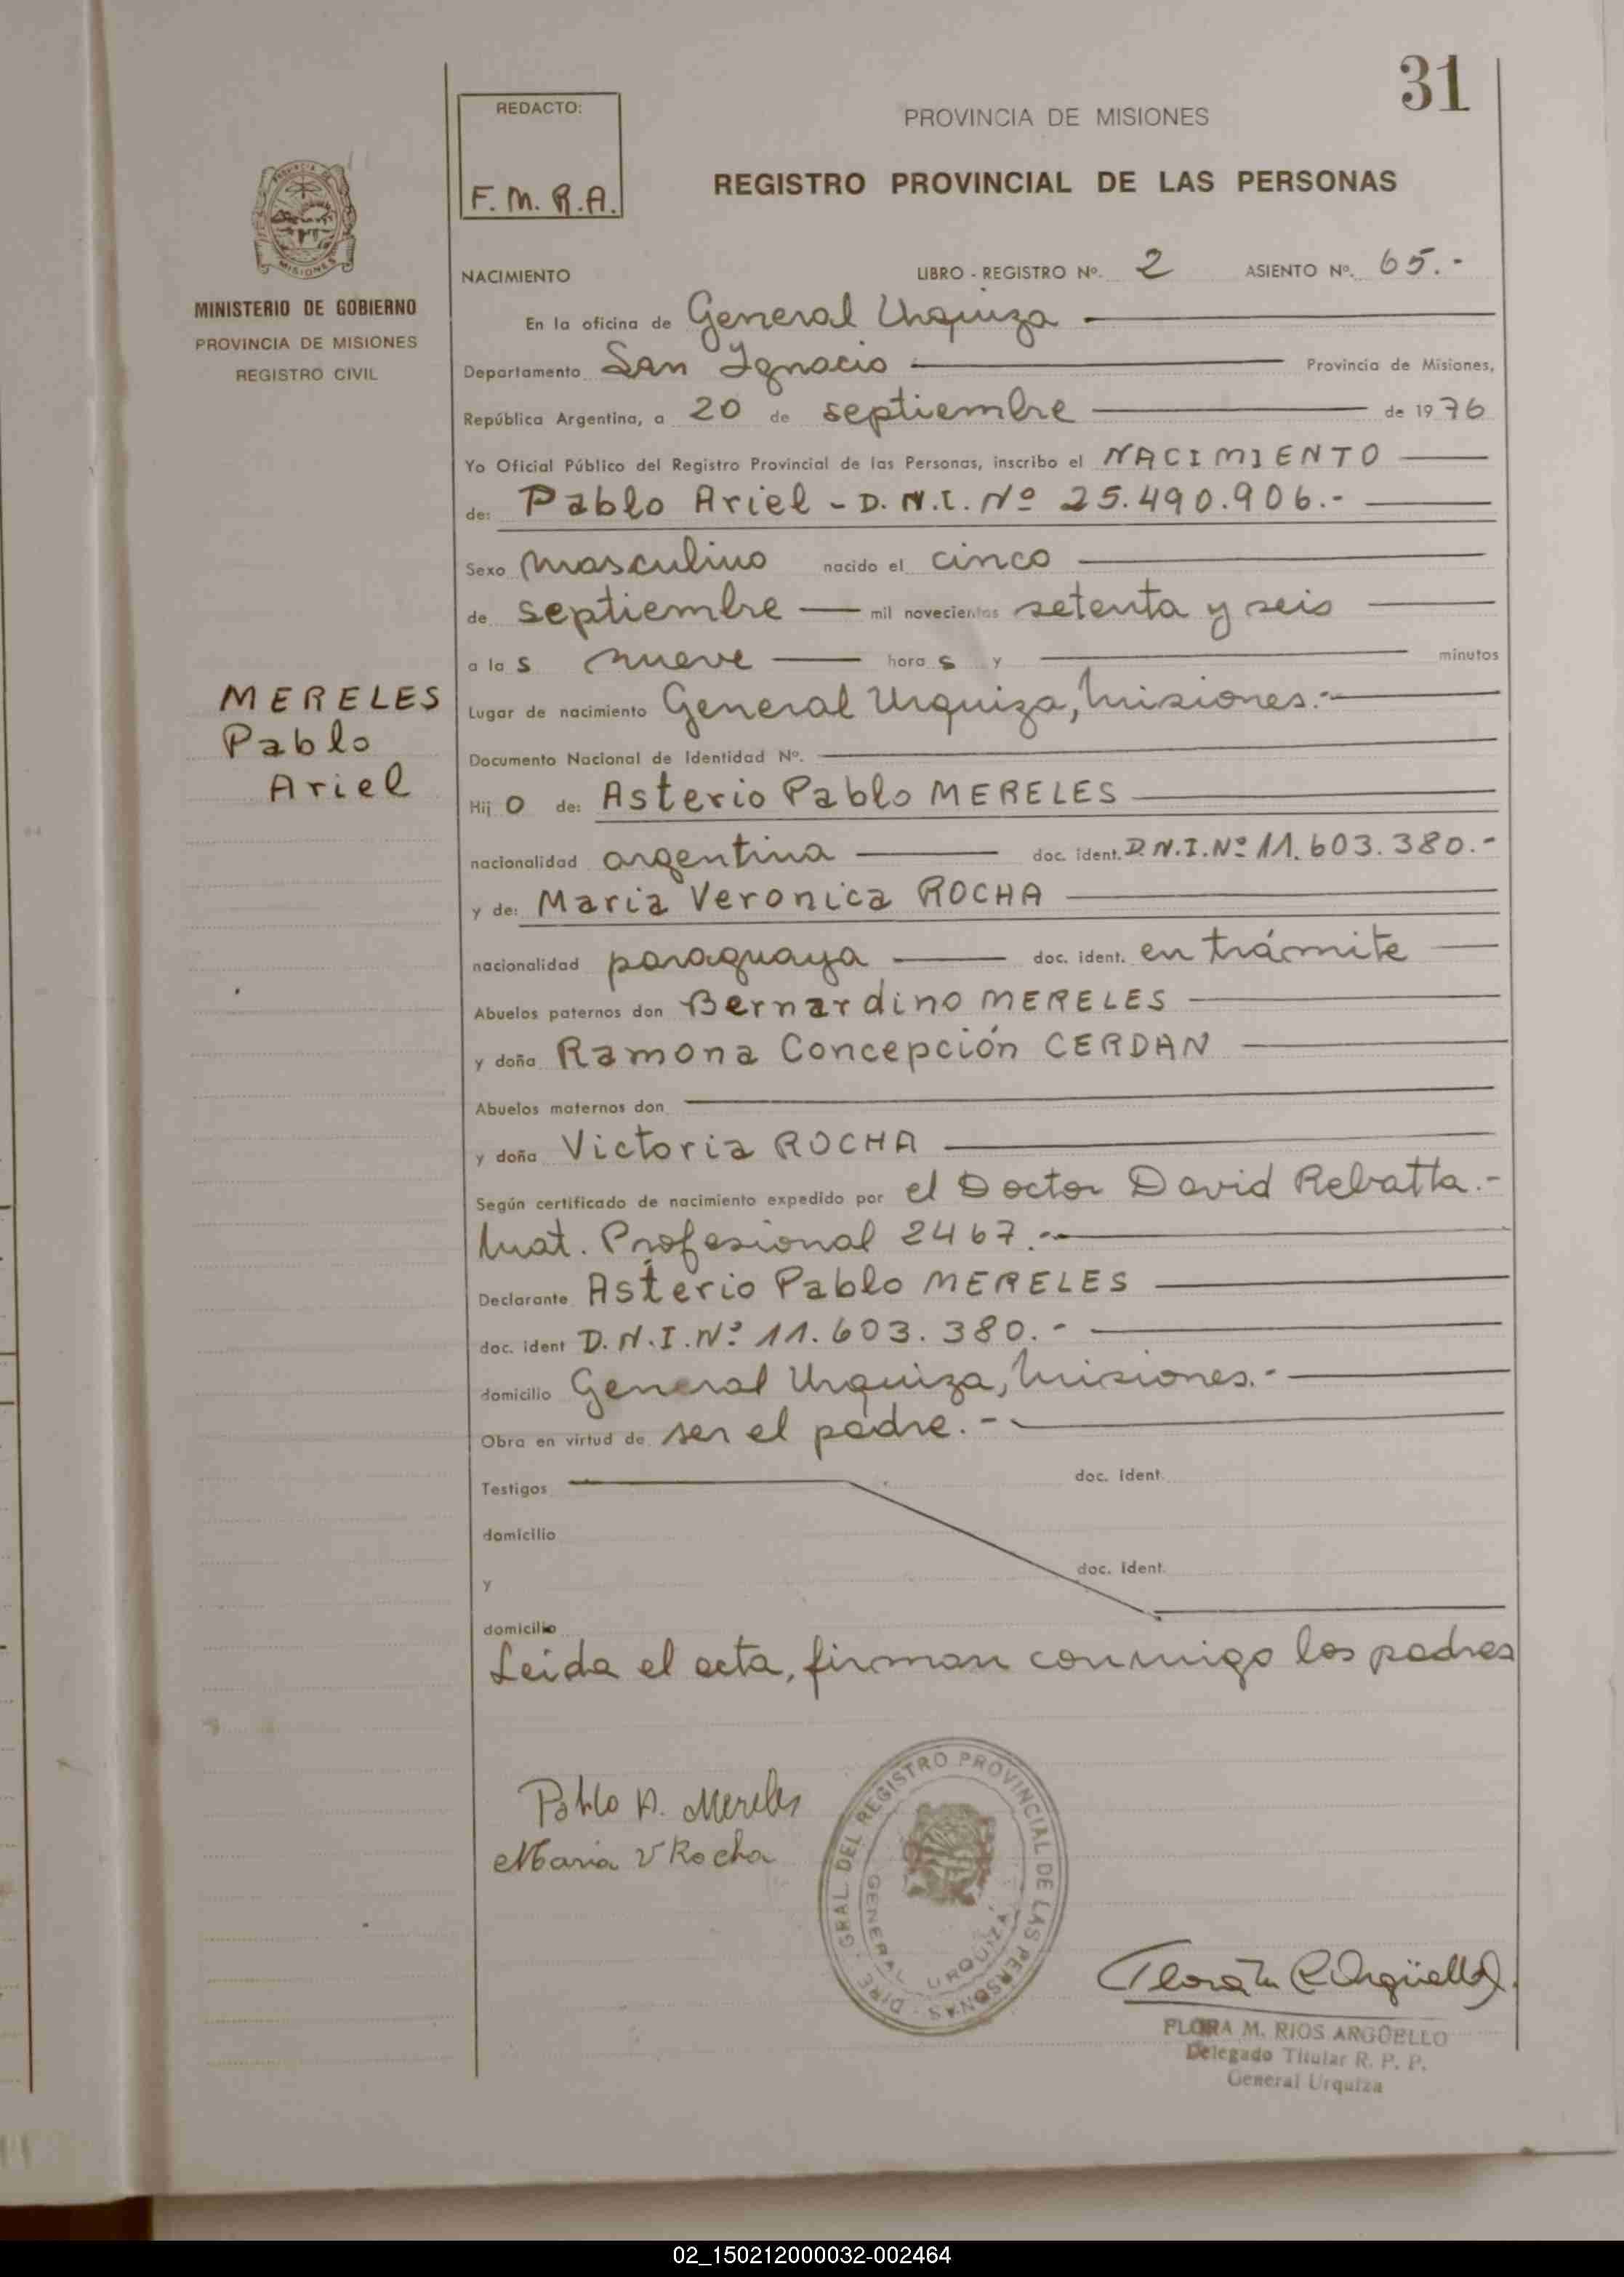 31
REDACTO:
F. M. R. A.
PROVINCIA DE MISIONES
REGISTRO PROVINCIAL DE LAS PERSONAS
PROVINCIA DE
MISIONES
MINISTERIO DE GOBIERNO
PROVINCIA DE MISIONES
REGISTRO CIVIL
NACIMIENTO LIBRO - REGISTRO Nº. 2 ASIENTO Nº. 65.-
En la oficina de General Urquiza
Departamento San Ignacio Provincia de Misiones,
República Argentina, a 20 de septiembre de 1976
Yo Oficial Público del Registro Provincial de las Personas, inscribo el NACIMIENTO
de: Pablo Ariel - D. N. I. Nº 25.490.906.-
Sexo masculino nacido el cinco
de septiembre mil novecientos setenta y seis
a la s nueve hora s y minutos
MERELES
Pablo
Ariel
Lugar de nacimiento General Urquiza, Misiones.-
Documento Nacional de Identidad Nº.
Hij o de: Asterio Pablo MERELES
nacionalidad argentina doc. ident. D.N.I.Nº 11.603.380.-
y de: Maria Veronica ROCHA
nacionalidad paraguaya doc. ident. en trámite
Abuelos paternos don Bernardino MERELES
y doña Ramona Concepción CERDAN
Abuelos maternos don
y doña Victoria ROCHA
Según certificado de nacimiento expedido por el Doctor David Rebatta.-
Mat. Profesional 2467.-
Declarante Asterio Pablo MERELES
doc. ident D.N.I.Nº 11.603.380.-
domicilio General Urquiza, Misiones.-
Obra en virtud de ser el padre.-
Testigos doc. ident.
domicilio
y doc. ident.
domicilio
Leida el acta, firman conmigo los padres
Pablo A. Mereles
Maria V Rocha
DIRE. GRAL. DEL REGISTRO PROVINCIAL DE LAS PERSONAS
GENERAL URQUIZA
FLORA M. RIOS ARGÜELLO
Delegado Titular R. P. P.
General Urquiza
02_150212000032-002464